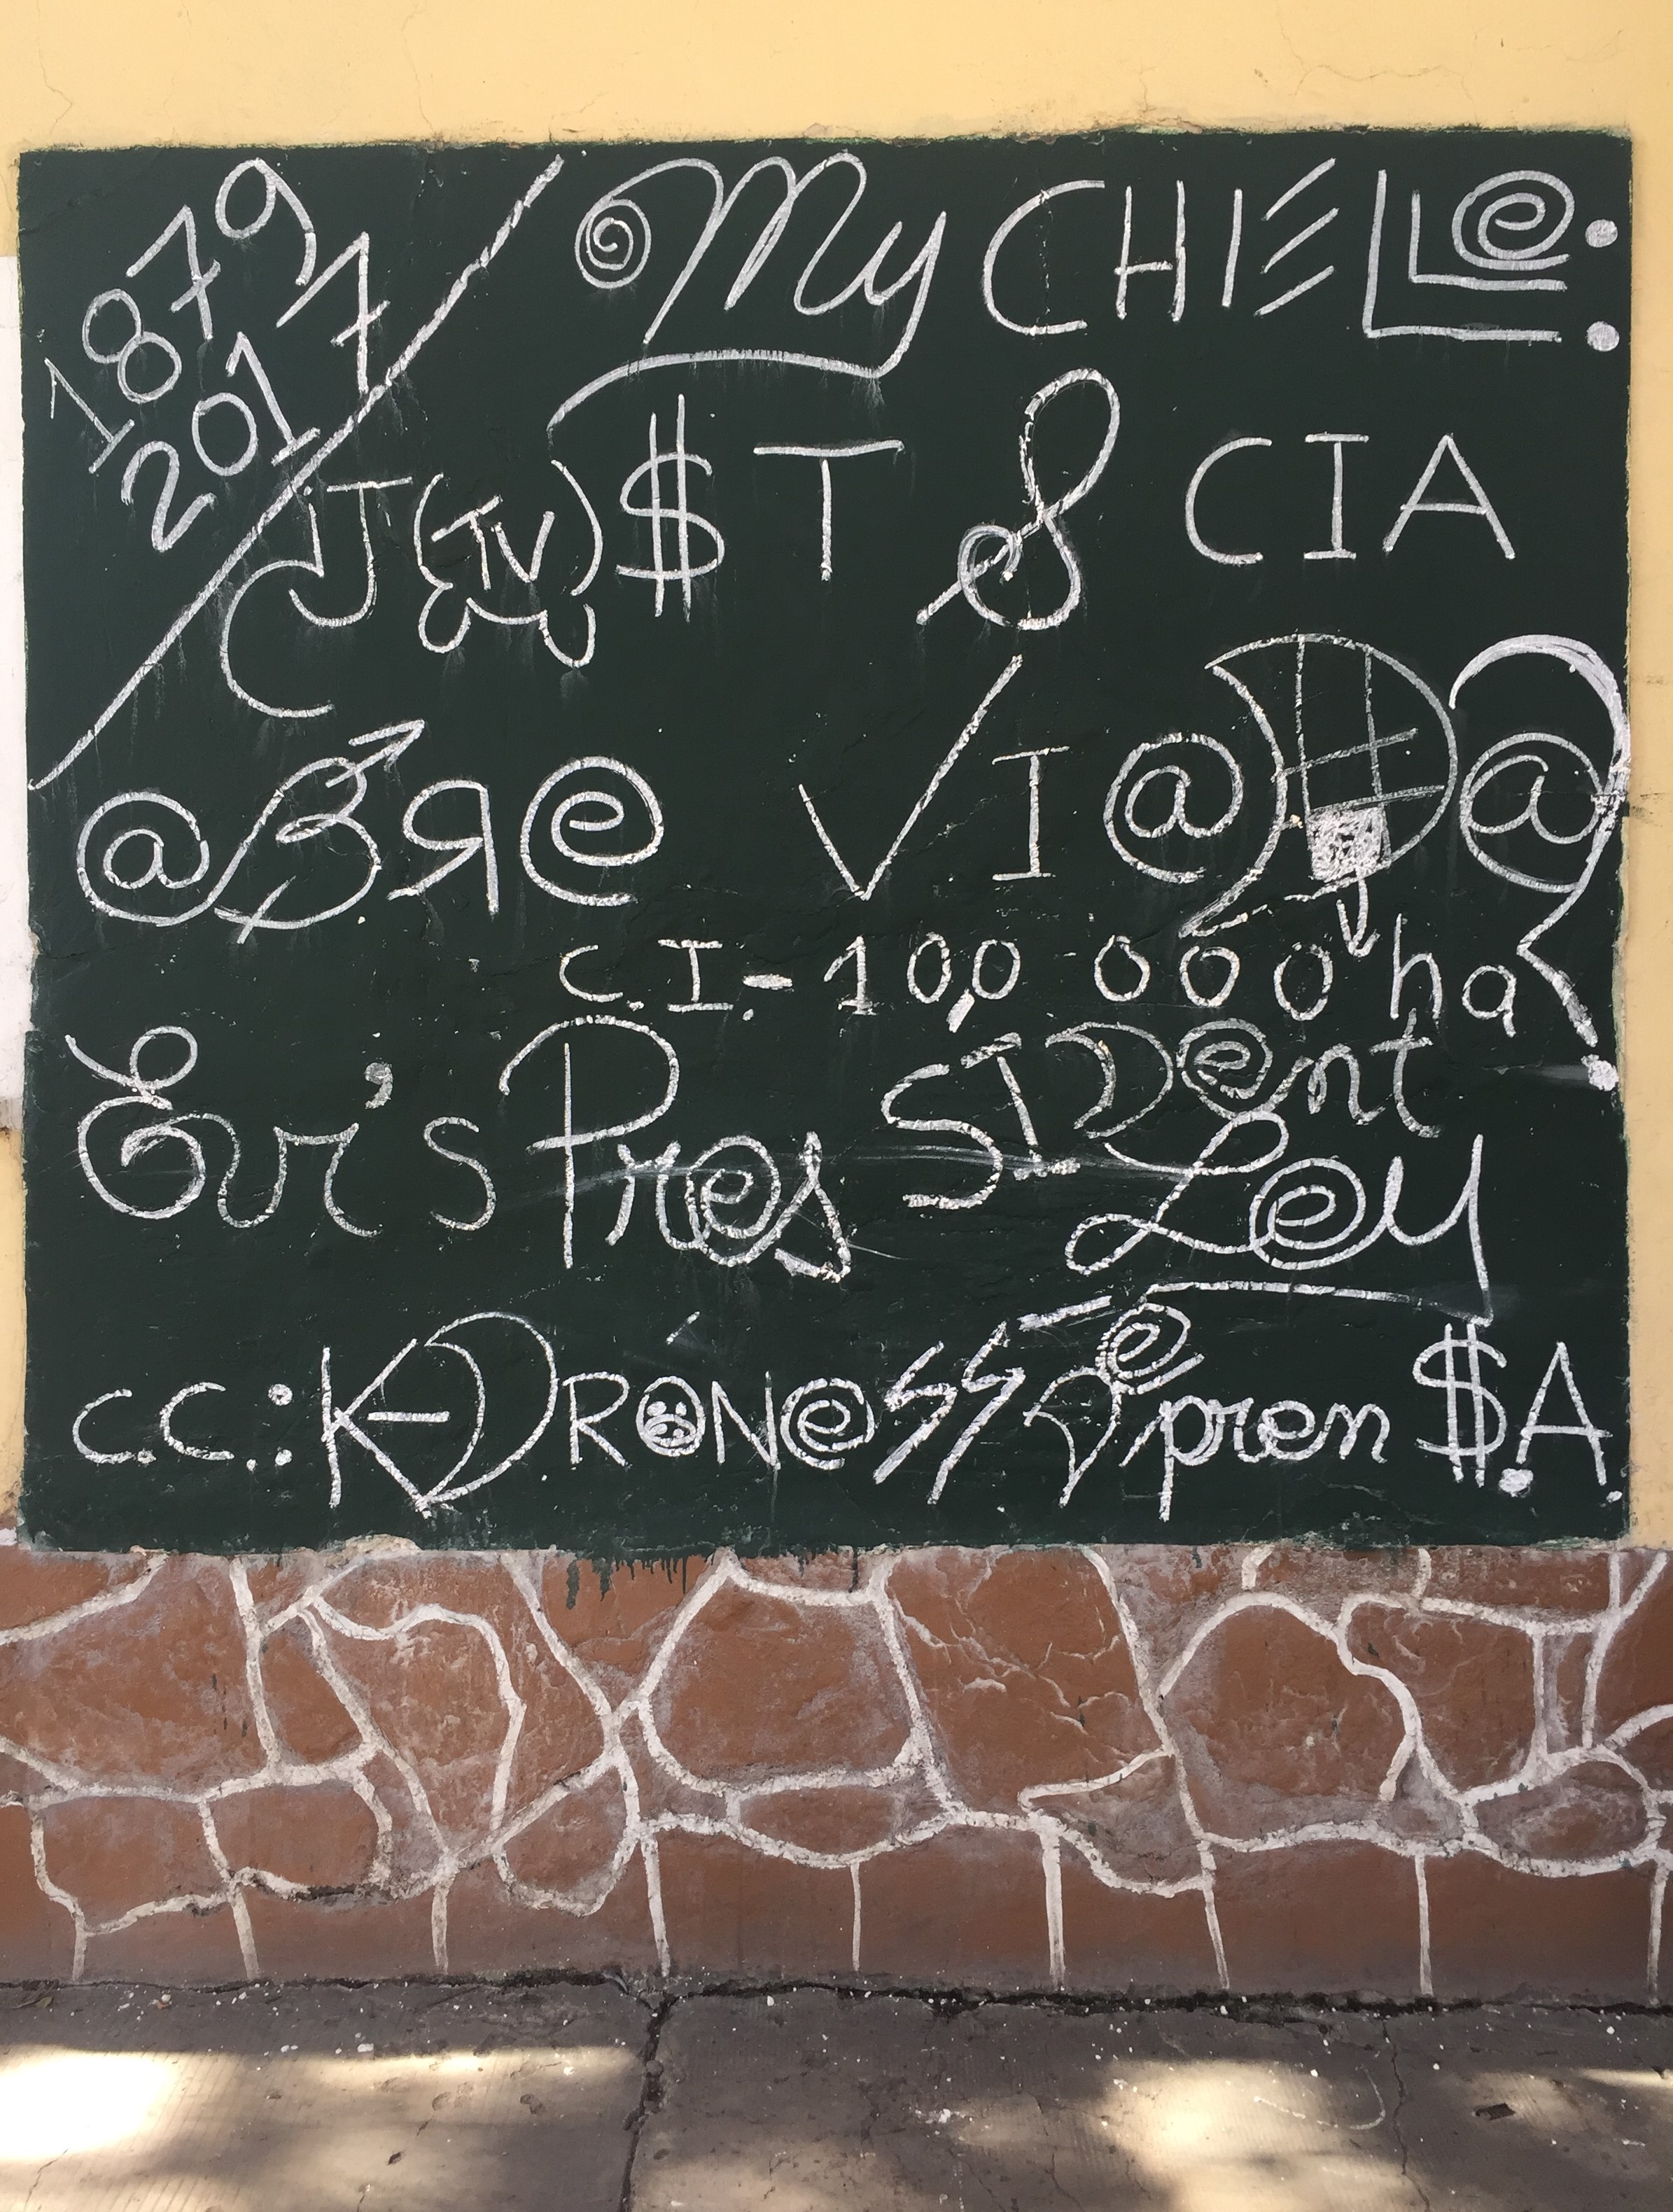 1879
2017
My CHIELe:
CJ(TV)$T & CIA
@BЯe VI@D@?
C.I.- 10,0 000 ha
Evr's PresSIDent Ley
c.c.: K-DRÓNeSS Depren $.A.